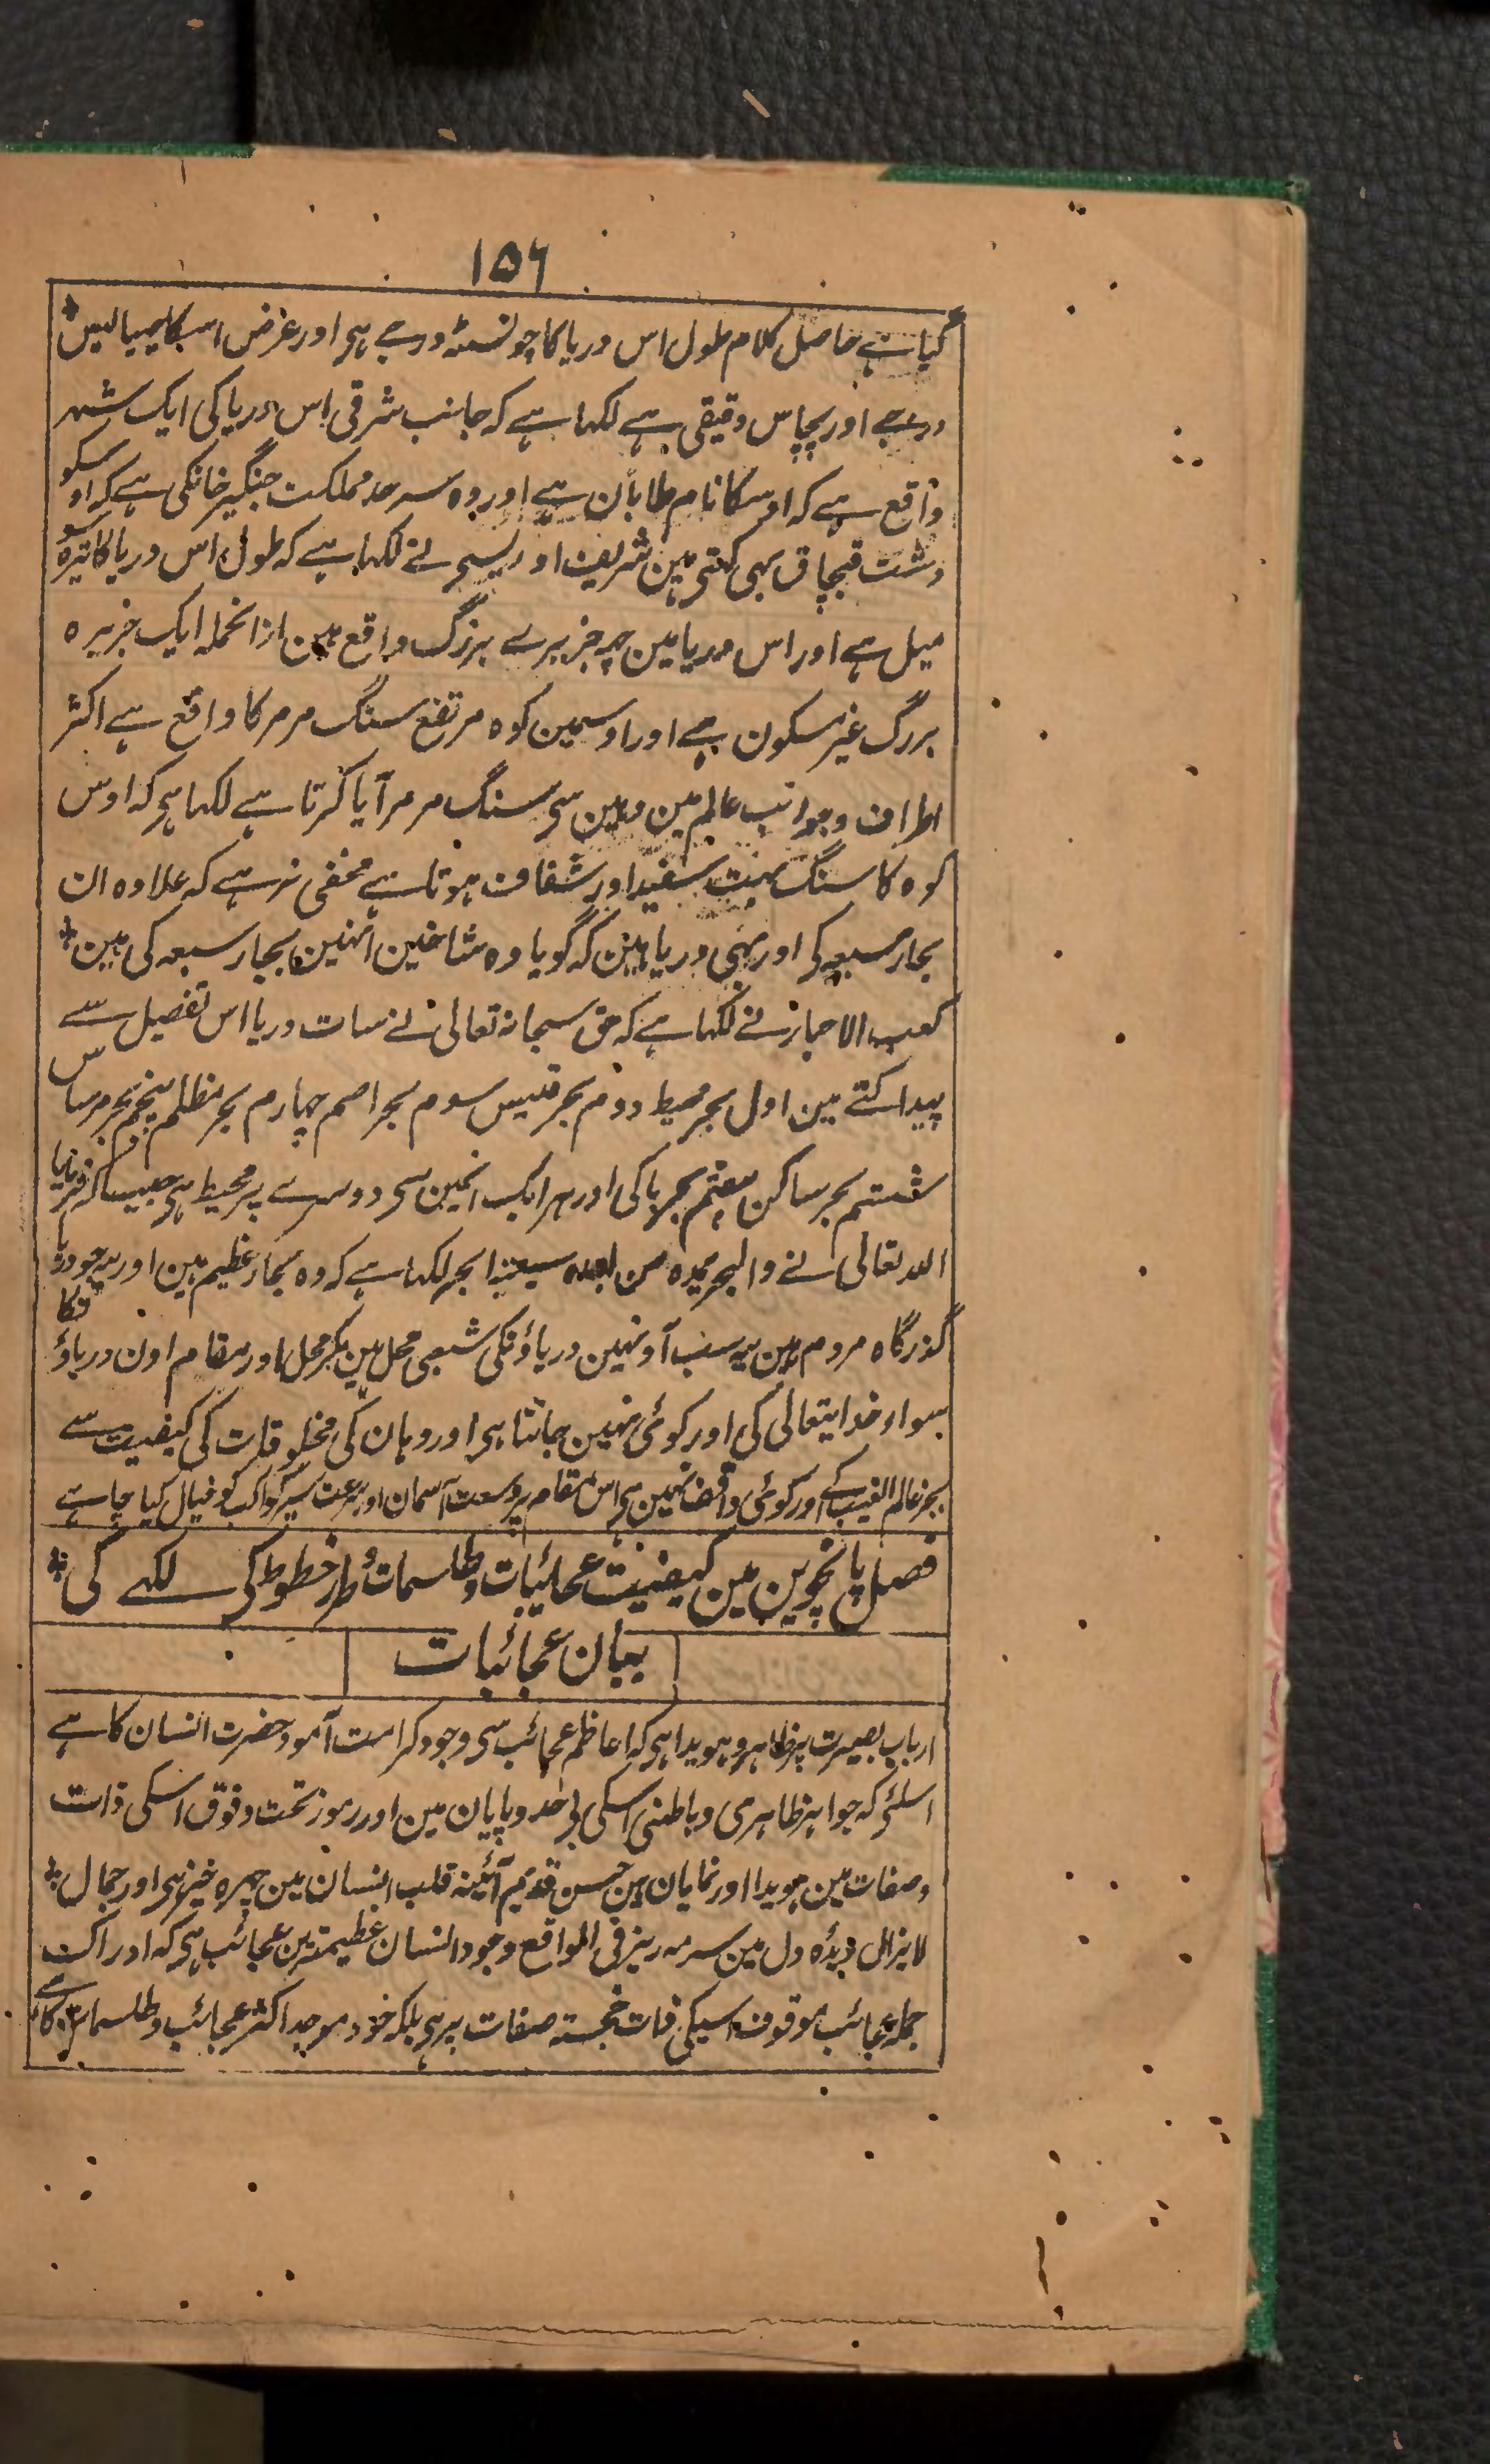 ۱۵۶
گیا ہے حاصل کلام طول اس دریا کا چونسٹہ درجے ہی اور عرض اسکا چھیالیس
درجے اور پچاس دقیقی ہے لکہا ہے کہ جانب شرقی اس دریا کی ایک شہر
واقع ہے کہ اوسکا نام طاباٰن ہے اور وہ سرحد مملکت جنگیز خانکی ہے کہ اوسکو
دشت قبچاق بہی کہتی ہین شریف اوریسی نے لکہا ہے کہ طول اس دریا کا تیرہ سو
میل ہے اور اس دریا مین چہ جزیرے بزرگ واقع ہین ازانجملہ ایک جزیرہ
بزرگ غیر مسکون ہے اور اوسمین کوہ مرتفع سنگ مرمر کا واقع ہے اکثر
اطراف و جوانب عالم مین وہین سی سنگ مرمر آیا کرتا ہے لکہا ہی کہ اوس
کوہ کا سنگ بہت سفید اور شفاف ہوتا ہے مخفی نرہے کہ علاوہ ان
بحار سبعہ کی اور بہی دریا ہین کہ گویا وہ شاخین انہین بحار سبعہ کی ہین
کعب الاحبار نے لکہا ہے کہ حق سبحانہ تعالی نے سات دریا اس تفصیل سے
پیدا کئے ہین اول بحر محیط دوم بحر قلیس سوم بحر اصم چہارم بحر مظلم پنجم بحر مرماس
ششم بحر ساکن ہفتم بحر باکی اور ہر ایک انمین سی دوسرے پر محیط ہی جیسا کہ فرمایا
اللہ تعالی نے والبحر یمدہ من بعدہ سبعۃ ابحر لکہا ہے کہ وہ بحار عظیم ہین اور یہ جو دریا
گذرگاہ مردم ہین یہ سب آونہین دریاؤنکی شعبی محل ہین مگر محل اور مقام اون دریاؤنکا
سواء خدایتعالی کی اور کوئی نہین جانتا ہی اور وہان کی مخلوقات کی کیفیت سے
بجز عالم الغیب کے اور کوئی واقف نہین ہی اس مقام پر وسعت آسمان اور سرعت سیر کواکب کو خیال کیا چاہے
فصل پانچوین مین کیفیت عجائبات و طلسمات و طرز خطوط کی لکہے گی
بیان عجائبات
ارباب بصیرت پر ظاہر و ہویدا ہی کہ اعاظم عجائب سی وجود کرامت آمود حضرت انسان کا ہے
اسلئے کہ جواہر ظاہری و باطنی اسکی بی حد و پایان ہین اور رموز تحت و فوق اسکی ذات
وصفات مین ہویدا اور نمایان ہین حسن قدیم آئینہ قلب انسان مین چہرہ خیز ہی اور جمال
لایزال دیدٔہ دل مین سرمہ ریز فی الواقع وجود انسان عظیمترین عجائب ہی کہ ادراکت
جملہ عجائب موقوف اسیکی ذات خجستہ صفات پر ہی بلکہ خود موجد اکثر عجائب و طلسمات کا ہے